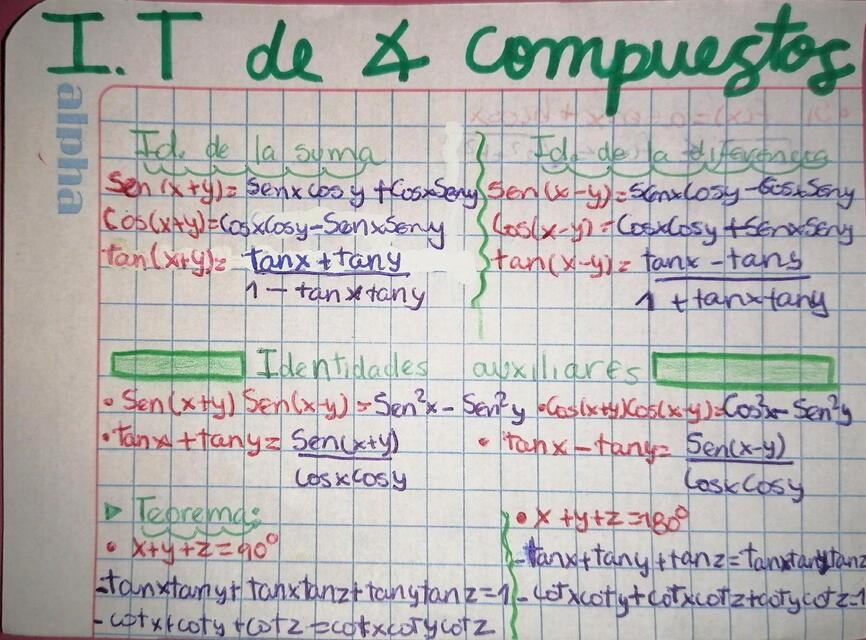 I.T de ∡ compuestos
alpha
Id. de la suma
Sen(x+y)= Senxcosy + CosxSeny
Cos(x+y)=CosxCosy-SenxSeny
tan(x+y)= tanx + tany
1 - tanxtany
Id. de la diferencia
Sen(x-y)=SenxCosy-CosxSeny
Cos(x-y)=CosxCosy+SenxSeny
tan(x-y)= tanx - tany
1 + tanxtany
Identidades auxiliares
• Sen(x+y) Sen(x-y) = Sen²x - Sen²y
• Cos(x+y)Cos(x-y)=Cos²x - Sen²y
• tanx + tany = Sen(x+y)
CosxCosy
• tanx - tany = Sen(x-y)
CosxCosy
▶ Teorema:
• x+y+z=90°
-tanxtany+tanxtanz+tanytanz=1
-cotx+coty+cotz=cotxcotycotz
• x+y+z=180°
-tanx+tany+tanz=tanxtanytanz
-cotxcoty+cotxcotz+cotycotz=1